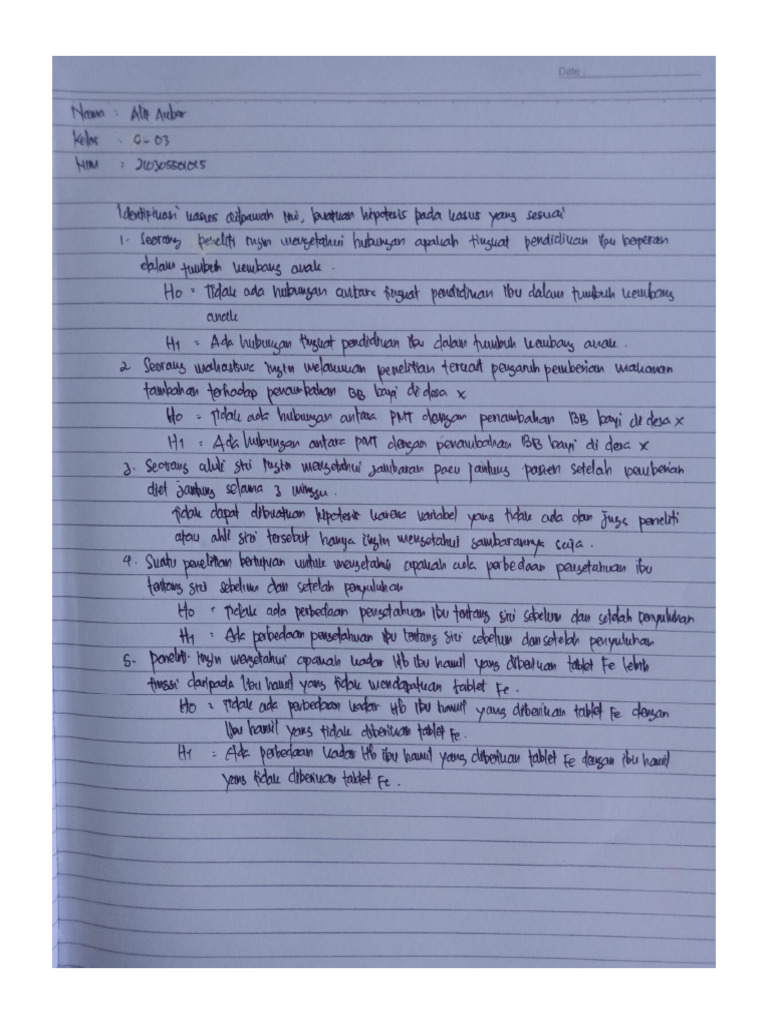 Date :
Nama : Alif Akbar
Kelas : G-03
NIM :
Identifikasi kasus dibawah ini, buatkan hipotesis pada kasus yang sesuai
1. Seorang peneliti ingin mengetahui hubungan apakah tingkat pendidikan ibu beperan
dalam tumbuh kembang anak.
H0 = Tidak ada hubungan antara tingkat pendidikan ibu dalam tumbuh kembang
anak
H1 = Ada hubungan tingkat pendidikan ibu dalam tumbuh kembang anak.
2 Seorang mahasiswa ingin melakukan penelitian terkait pengaruh pemberian makanan
tambahan terhadap penambahan BB bayi di desa x
H0 = Tidak ada hubungan antara PMT dengan penambahan BB bayi di desa x
H1 = Ada hubungan antara PMT dengan penambahan BB bayi di desa x
3. Seorang ahli gizi ingin mengetahui gambaran pacu jantung pasien setelah pemberian
diet jantung selama 3 minggu.
Tidak dapat dibuatkan hipotesis karena variabel yang tidak ada dan juga peneliti
atau ahli gizi tersebut hanya ingin mengetahui gambarannya saja.
4. Suatu penelitian bertujuan untuk mengetahui apakah ada perbedaan pengetahuan ibu
tentang gizi sebelum dan setelah penyuluhan
H0 = Tidak ada perbedaan pengetahuan ibu tentang gizi sebelum dan setelah penyuluhan
H1 = Ada perbedaan pengetahuan ibu tentang gizi sebelum dan setelah penyuluhan
5. Peneliti ingin mengetahui apakah kadar Hb ibu hamil yang diberikan tablet Fe lebih
tinggi daripada ibu hamil yang tidak mendapatkan tablet Fe.
H0 = Tidak ada perbedaan kadar Hb ibu hamil yang diberikan tablet Fe dengan
ibu hamil yang tidak diberikan tablet Fe.
H1 = Ada perbedaan kadar Hb ibu hamil yang diberikan tablet Fe dengan ibu hamil
yang tidak diberikan tablet Fe.